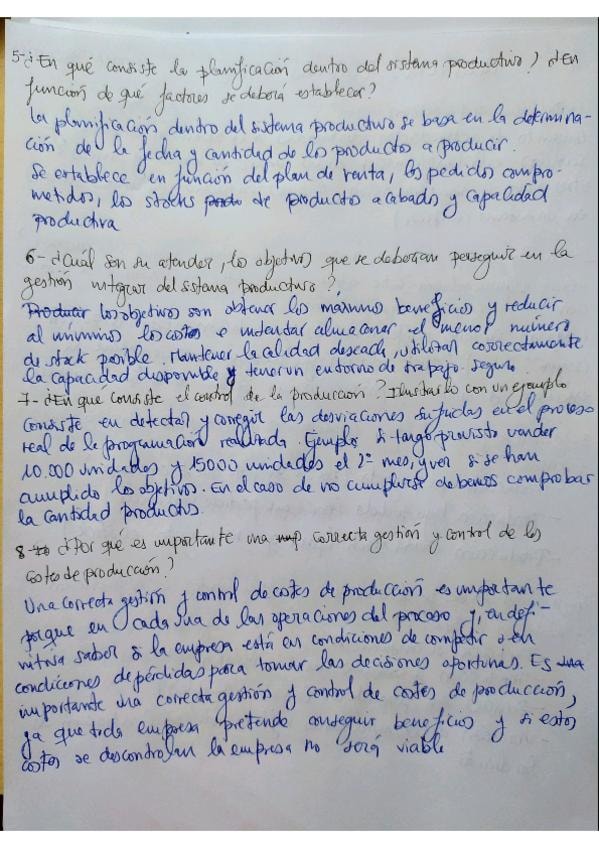 5- ¿En qué consiste la planificación dentro del sistema productivo? ¿En
función de qué factores se deberá establecer?
La planificación dentro del sistema productivo se basa en la determina-
ción de la fecha y cantidad de los productos a producir.
Se establece en función del plan de venta, los pedidos compro-
metidos, los stocks de productos acabados y capacidad
productiva
6- ¿Cuál son su atender, los objetivos que se deberian perseguir en la
gestión integrar del sistema productivo?
Producir los objetivos son obtener los maximos beneficios y reducir
al mínimos los costes e intentar almacenar el menor número
de stock posible. Mantener la calidad deseada, utilizar correctamente
la capacidad disponible y tener un entorno de trabajo seguro
7- ¿En que consiste el control de la producción? Ilustrarlo con un ejemplo
Consiste en detectar y corregir las desviaciones sufridas en el proceso
real de la programación realizada. Ejemplo si tengo previsto vender
10.000 unidades y 15000 unidades el 2º mes, y ver si se han
cumplido los objetivos. En el caso de no cumplirse debemos comprobar
la cantidad productos.
8- ¿Por qué es importante una correcta gestión y control de los
costes de producción?
Una correcta gestión y control de costes de producción es importante
porque en cada una de las operaciones del proceso y, en defi-
nitiva saber si la empresa está en condiciones de competir o en
condiciones de pérdidas para tomar las decisiones oportunas. Es
importante una correcta gestión y control de costes de producción,
ya que toda empresa pretende conseguir beneficios y si estos
costes se descontrolan la empresa no será viable